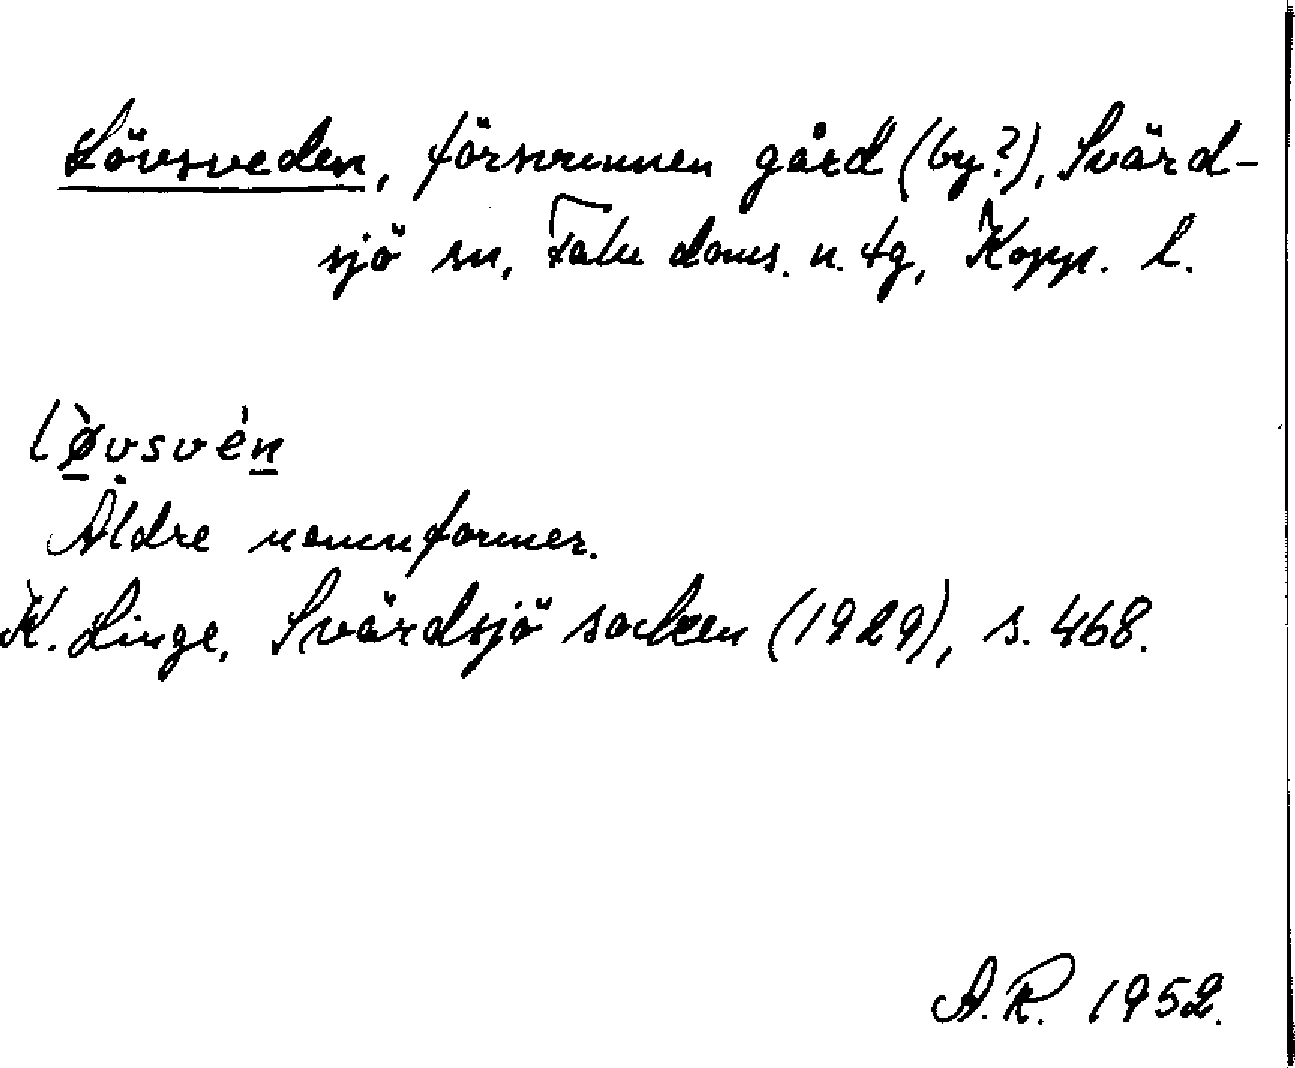 Lövsveden, försvunnen gård (by?), Svärd-
sjö sn, Falu doms. n. tg, Kopp. l.
lø̀vsvèn
Äldre namnformer.
K. Linge, Svärdsjö socken (1929), s. 468.
A.R. 1952.